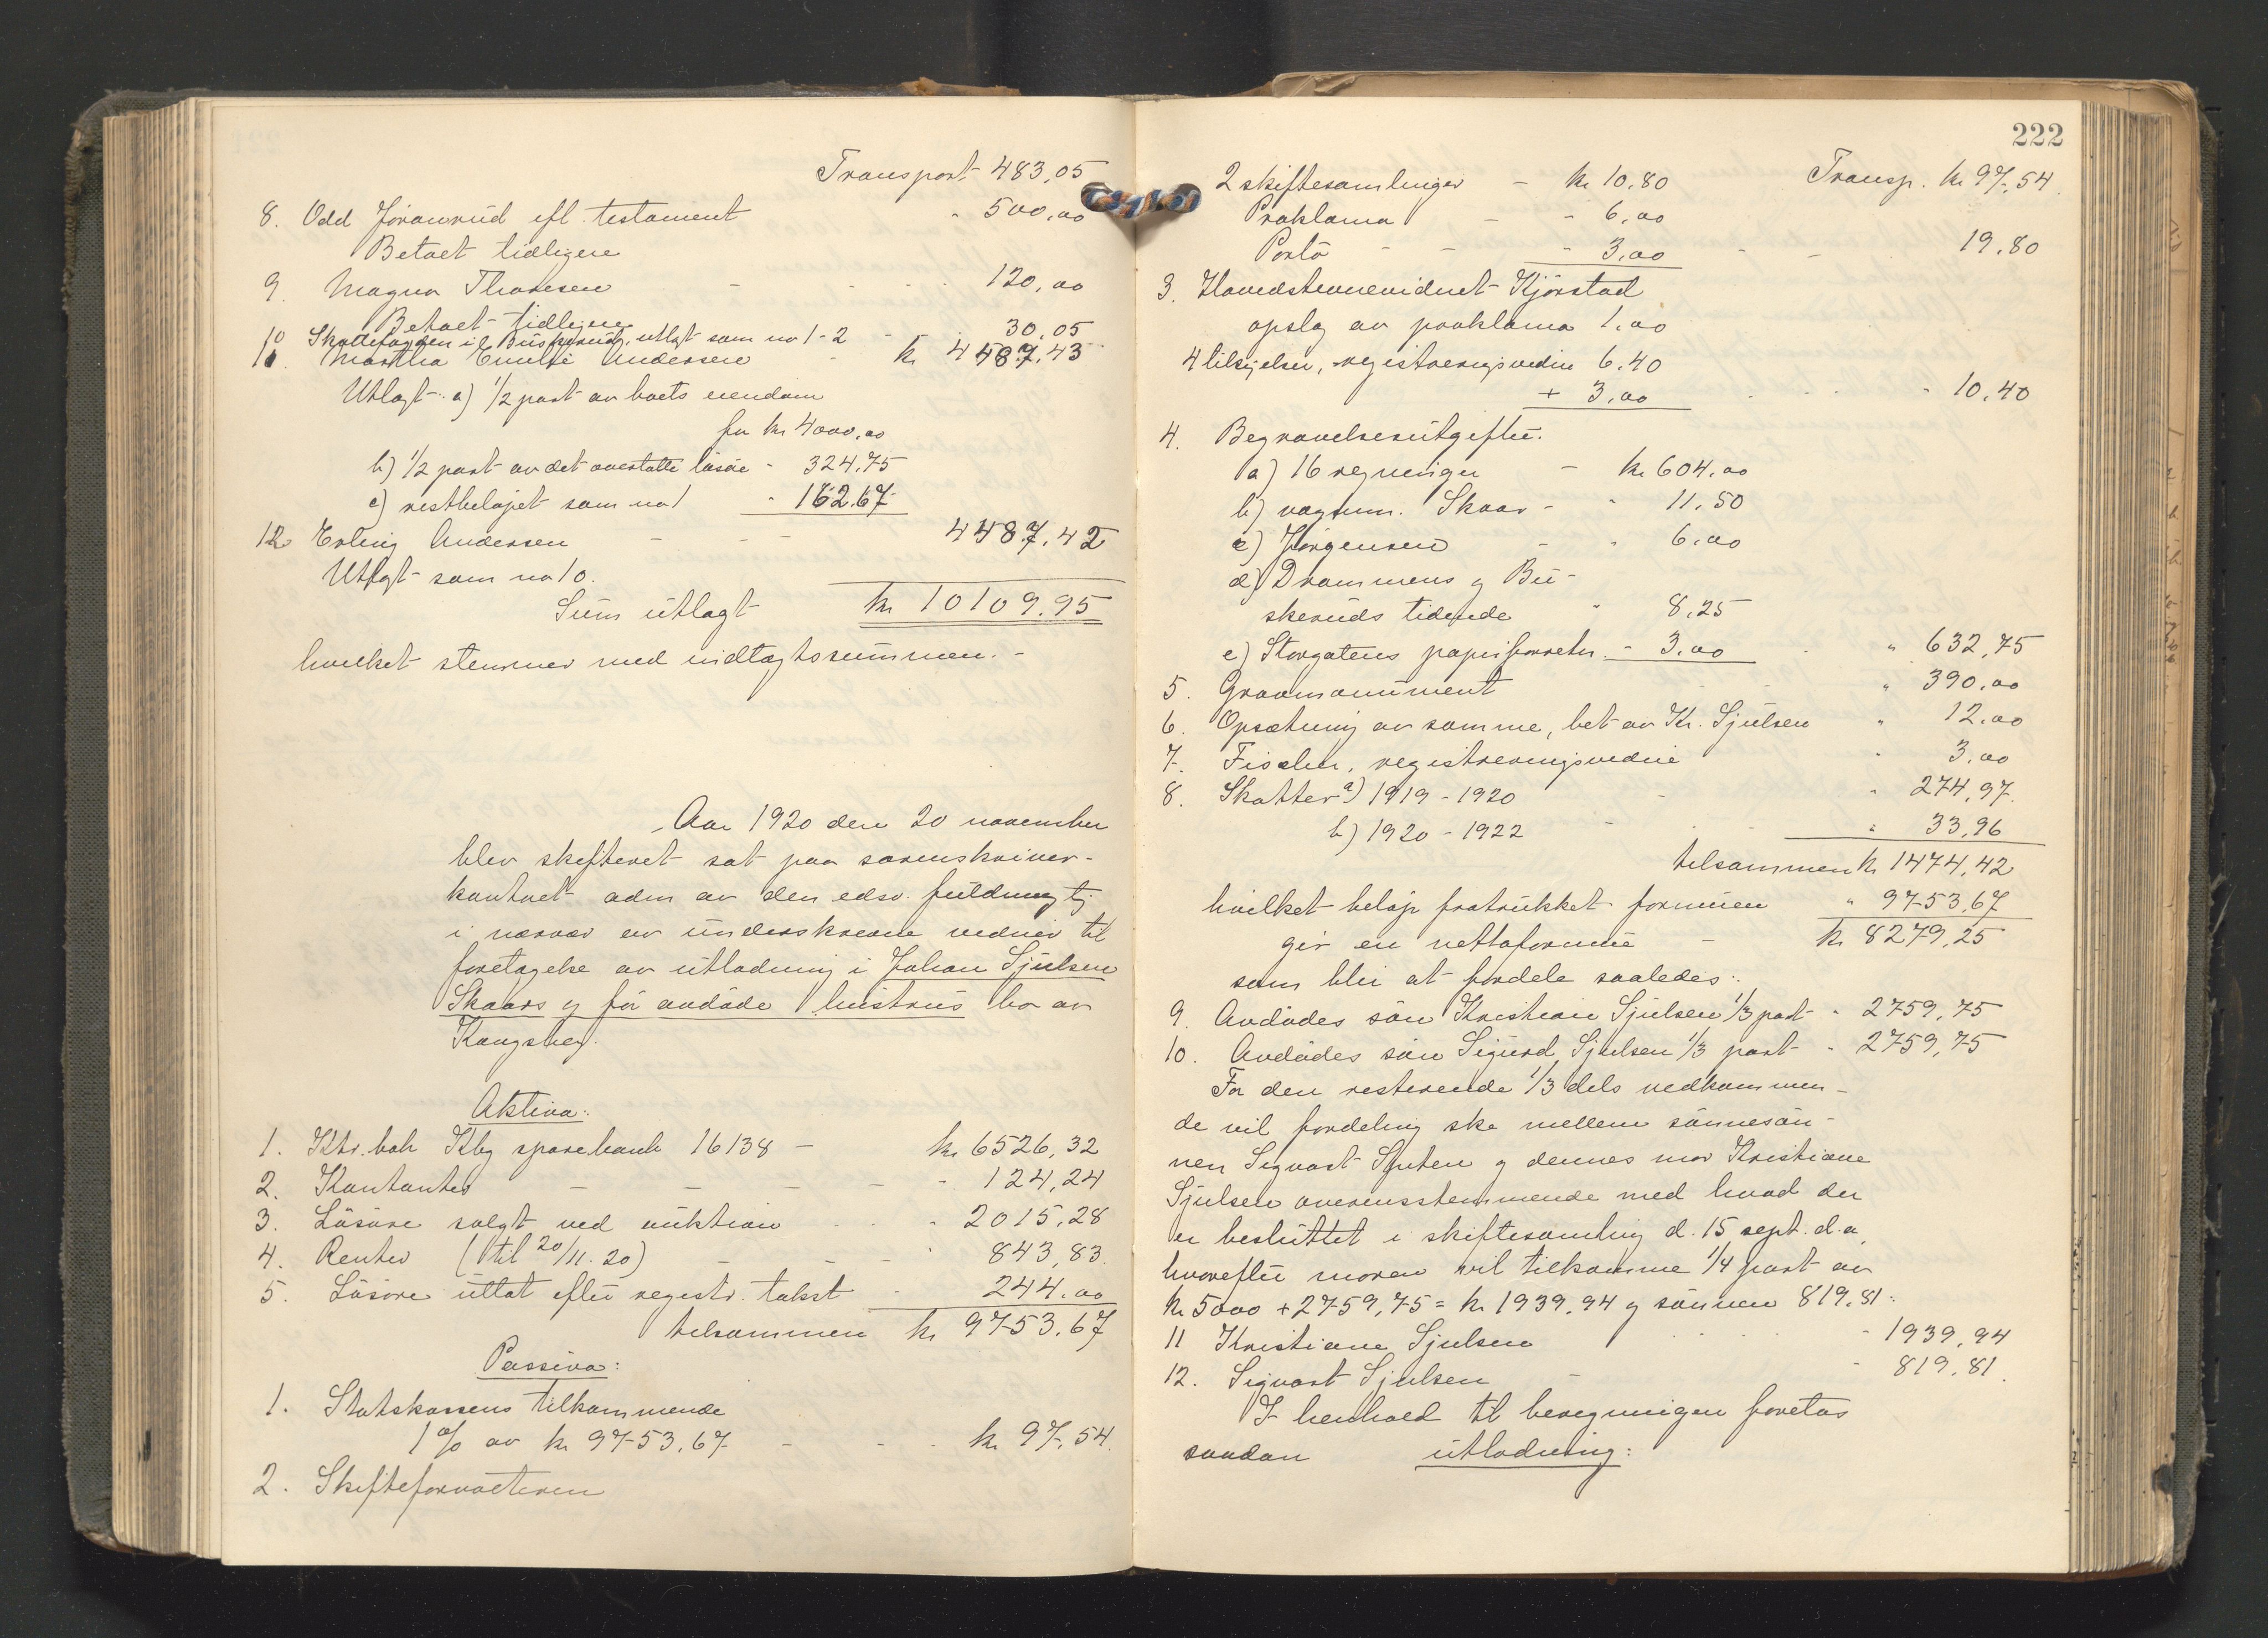 Transport 483,05
8. Odd Jöransrud efl. testament " 500,00
Betalt tidligere
9. Magna Thoresen - - - 120,00
Betalt tidligere
10 Skattefogden i Buskerud, utlagt som no 1-2 - 30,05
11. Martha Emilie Andersen - kr 4487,43
Utlagt: a) 1/2 part av boets eiendom
for kr 4000,00
b) 1/2 part av det overtatte lösöre - 324,75
c) restbelöpet som no 1 " 162,67
12 Erling Andersen - - - 4487,42
Utlagt som no 10.
Sum utlagt kr 10109.95
hvilket stemmer med indtægtssummen. -
Aar 1920 den 20 november
blev skifteret sat paa sorenskriver-
kontoret adm av den edsv. fuldmægtig
i nærvær av underskrevne vidner til
foretagelse av utlodning i Johan Sjulsen
Skaars og før avdöde hustrus bo av
Kongsberg.
Aktiva:
1. Ktr. bok Kbg sparebank 16138 - kr 6526,32
2. Kontanter - - - - - 124,24
3. Lösöre solgt ved auktion - - " 2015,28
4. Renter (til 20/11.20) - - - " 843,83
5. Lösöre uttat efter registr. takst - 244,00
tilsammen kr 9753.67
Passiva:
1. Statskassens tilkommende
1% av kr 9753.67 - - - kr 97,54.
2. Skifteforvalteren
222
2 skiftesamlinger - kr 10,80 Transp. kr 97,54.
Proklama - - 6,00
Porto - - - 3,00 - - 19,80
3. Hovedstevnevidnet Kjörstad
opslag av proklama 1.00
4 tilsigelser, registreringsvidne 6.40
+ 3,00 - - - - 10,40
4. Begravelsesutgifter.
a) 16 regninger - kr 604.00
b) vognm. Skaar - " 11,50
c) Jörgensen - " 6.00
d) Drammens og Bu-
skeruds tidende " 8,25
e) Storgatens papirforretn. - 3.00 - " 632,75
5. Gravmonument - - " 390.00
6. Opsætning av samme, bet av Kr. Sjulsen " 12.00
7. Fischer, registreringsvidne " 3,00
8. Skatter a) 1919 - 1920 - " 274,97.
b) 1920 - 1922 - - - " 33,96
tilsammen kr 1474,42
hvilket belöp fratrukket formuen " 9753,67
gir en nettoformue - kr 8279,25
som blir at fordele saaledes:
9. Avdödes sön Kristian Sjulsen 1/3 part - " 2759,75
10. Avdödes sön Sigurd Sjulsen 1/3 part - " 2759,75
For den resterende 1/3 dels vedkommen-
de vil fordeling ske mellem sönnesön-
nen Sigvart Sjulsen og dennes mor Kristiane
Sjulsen overensstemmende med hvad der
er besluttet i skiftesamling d. 15 sept. d.a,
hvorefter moren vil tilkomme 1/4 part av
kr 5000 + 2759,75 = kr 1939.94 og sönnen 819.81.
11 Kristiane Sjulsen - - - - 1939,94
12. Sigvart Sjulsen - - 819,81.
I henhold til beregningen foretas
saadan utlodning: